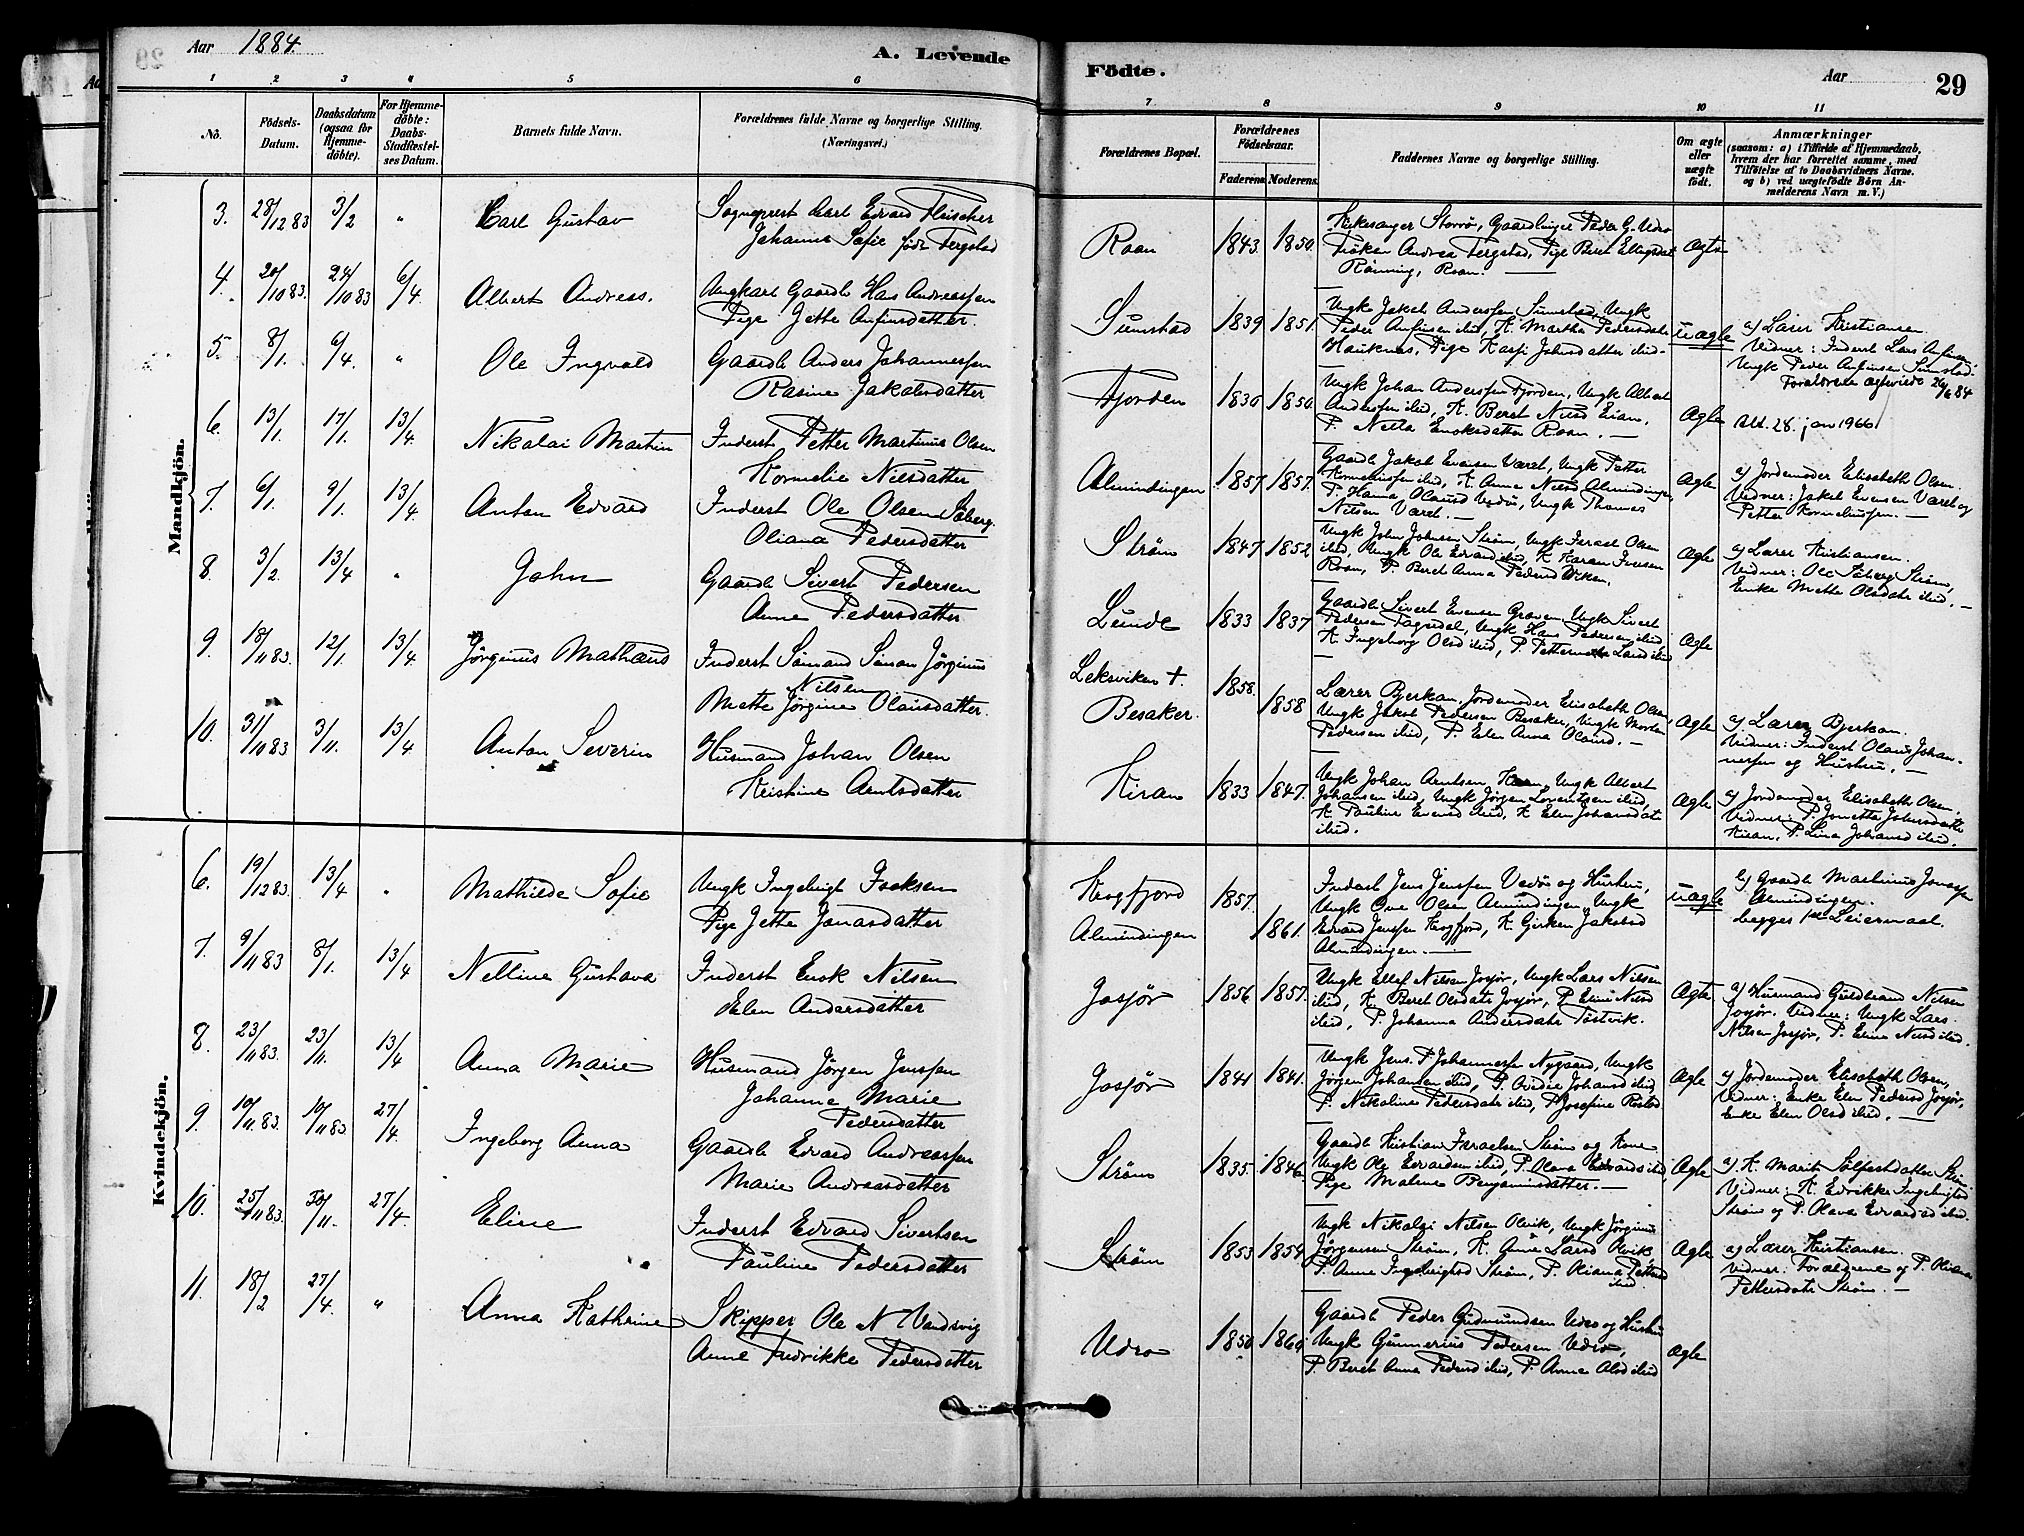 Aar 1884.
A. Levende
Födte.
Aar
29
1 2 3 4 5 6 7 8 9 10 11
No.
Födsels-Datum.
Daabsdatum (ogsaa for Hjemmedöbte).
For Hjemmedöbte: Daabs-Stadfæstelses Datum.
Barnets fulde Navn.
Forældrenes fulde Navne og borgerlige Stilling.
(Næringsvei.)
Forældrenes Bopæl.
Forældrenes Födselsaar.
Faderens. Moderens.
Faddernes Navne og borgerlige Stilling.
Om ægte eller uægte födt.
Anmærkninger
(saasom: a) i Tilfælde af Hjemmedaab,
hvem der har forrettet samme, med
Tilföielse af to Daabsvidners Navne.
og b) ved uægtefödte Börn An-
melderens Navn m. V.)
Mandkjön.
3. 28/12 83 3/2 " Carl Gustav
Sogneprest Carl Edvard Fleischer
Johanne Sofie föde Fergstad
Roan 1843. 1850.
Kirkesanger Storrö, Gaardbruger Peder G. Udro
Fröken Andrea Fergstad, Pige Beret
Rönning, Roan.
Ægte
4. 20/10 83. 24/10 83 6/4. Albert Andreas.
Ungkarl Gaardb Hans Andreassen
Pige Jette Anfinsdatter.
Sumstad 1839 1851.
Ungk Jakob Anderssen Sumstad, Ungk
Peder Anfinsen ibid, K. Martha Pedersdatr
Hauknes, Pige Karsi Johnsdatter ibid.
uægte
a) Lærer Kristiansen.
Vidner: Inderst Lars Anfinsen
Ungk Peder Anfinsen Sumstad.
Forældrene ægteviede 26/6 84
5. 8/1. 6/4. " Ole Ingvald
Gaardb Anders Johannessen
Rasine Jakobsdatter
Fjorden 1836 1850.
Ungk Johan Anderssen Fjorden, Ungk Albert
Anderssen ibid, K. Beret Nilsd Evian,
P. Nella Enoksdatter Roan.
Ægte
Utt. 28. jan 1966
6. 13/1. 17/1. 13/4 Nikolai Martin
Inderst Petter Martinus Olsen
Kornelie Nilsdatter
Almindingen 1857 1857.
Gaardb Jakob Evensen Været, Ungk Petter
Korneliussen ibid, K. Anna Nilsd Almindingen,
P. Hanna Olausd Vedö, Ungk Thomas
Nilsen Været.
Ægte
a) Jordemoder Elisabeth Olsen.
Vidner: Jakob Evensen Været og
Petter Korneliussen.
7. 6/1. 9/1. 13/4. Anton Edvard
Inderst Ole Olsen Söberg.
Oliana Pedersdatter
Ström 1847 1852
Ungk John Johnsen Ström, Ungk Israel Olsen
ibid, Ungk Ole Edvard ibid, K. Karen Iversen
Roan, P. Beret Anna Pedersd Viken.
Ægte
a) Lærer Kristiansen.
Vidner: Ole Söberg Ström,
Enke Mette Olsdatr ibid.
8. 3/2. 13/4 " John
Gaardb Sivert Pedersen
Anne Pedersdatter.
Lunde 1833 1837
Gaardb Sivert Evensen Graven, Ungk Sivert
Pedersen Fagerdal, Ungk Hans Pedersen ibid
K. Ingeborg Olsd ibid, P. Larsd ibid
Ægte
9. 18/11 83. 12/1. 13/4 Jörginus Mathæus
Inderst Sömand Simon Jörginus
Nilsen
Mette Jörgine Olausdatter.
Leksviken +. Besaker. 1858. 1858
Lærer Bjerkan, Jordemoder Elisabeth Olsen,
Ungk Jakob Pedersen Besaker, Ungk Morten
Pedersen ibid, P. Elen Anna Olausd.
Ægte
a) Lærer Bjerkan.
Vidner: Inderst Olaus Johan-
nessen og Hustru.
10. 31/10 83 3/11. 13/4 Anton Severin
Husmand Johan Olsen
Kristine Arntsdatter
Kiran 1833 1847.
Ungk Johan Arntsen Kiran, Ungk Albert
Johansen ibid, Ungk Jörgen Lorentsen ibid,
K. Pauline Evensd ibid, K. Elen Johansdat
ibid.
Ægte
a) Jordemoder Elisabeth Olsen.
Vidner: P. Jonetta Johansdatter
Kiran, P. Lina Johansd ibid.
Kvindekjön.
6. 19/12 83. 13/4 " Mathilde Sofie
Ungk Ingebrigt Isaksen
Pige Jette Jonasdatter
Krogfjord Almindingen 1857. 1861.
Inderst Jens Jenssen Vedö og Hustru,
Ungk Ove Olsen Almindingen, Ungk
Edvard Jenssen Krogfjord, K. Gjertine Jakobsd
Almindingen.
uægte
b) Gaardb Martinus Jonassen
Almindingen.
begges 1ste Leiermaal.
7. 9/11 83 8/1. 13/4 Nelline Gustava
Inderst Enok Nilsen
Elen Andersdatter
Josjör 1856 1857.
Ungk Ellef Nilsen Josjör, Ungk Lars Nilsen
ibid, K. Beret Olsdatr Josjör, P. Eline Nilsd
ibid, P. Johanna Andersdatr Tostvik.
Ægte
a) Husmand Guldbrand Nilsen
Josjör. Vidner: Ungk Lars
Nilsen Josjör, P. Eline Nilsd ibid.
8. 23/11 83. 23/11. 13/4 Anna Marie
Husmand Jörgen Jenssen
Johanna Marie
Pedersdatter
Josjör 1841 1841.
Ungk Jens P. Johannessen Nygaard, Ungk
Jörgen Johansen ibid, P. Ovedie Johansd ibid
P. Nikoline Pedersdatr ibid, P. Josefine
Ægte
a) Jordemoder Elisabeth Olsen,
Vidner: Enke Elen Pedersd Josjör,
Enke Elen Olsd ibid.
9. 10/11 83. 10/11 83. 27/4 Ingeborg Anna
Gaardb Edvard Andreassen
Marie Andreasdatter
Ström 1835. 1846.
Gaardb Kristian Israelsen Ström og Kone
Ungk Ole Edvardsen ibid, P. Olava Edvardsd ibid,
Pige Malene Benjaminsdatter.
Ægte
a) K. Marit Sölfestdatter Ström
Vidner: K. Edrikke Ingebrigtsd
Ström og P. Olava Edvardsd ibid.
10. 25/11 83. 30/11. 27/4. Eline
Inderst Edvard Sivertsen
Pauline Pedersdatter
Ström 1853 1854
Ungk Nikolai Nilsen Olvik, Ungk Jörginus
Jörgensen Ström, K. Anne Larsd Olvik
P. Anne Ingebrigtsd Ström, P. Oliana Pettersd
ibid.
Ægte
a) Lærer Kristiansen.
Vidner: Forældrene og P. Oliana
Pettersdatr Ström.
11. 18/2 27/4. " Anna Kathrine
Skipper Ole N. Vandsvig
Anne Fredrikke Pedersdatter
Udro 1850 1860
Gaardb Peder Gudmundsen Udro og Hustru
Ungk Gunnerius Pedersen Udro,
P. Beret Anna Pedersd ibid, P. Anne Olsd ibid
Ægte